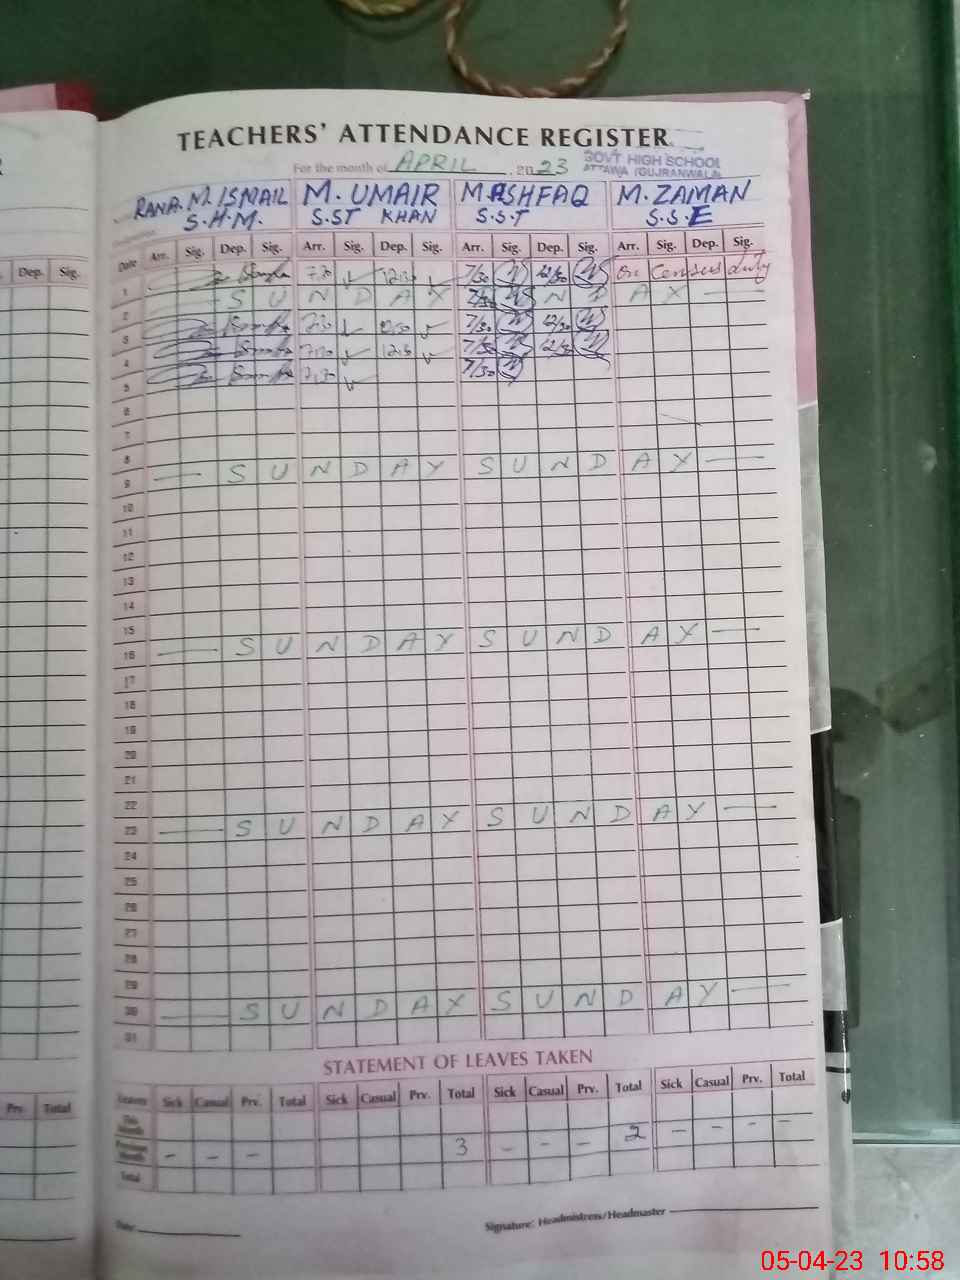 TEACHERS' ATTENDANCE REGISTER
For the month of APRIL, 2023
GOVT HIGH SCHOOL
ATTAWA (GUJRANWALA
RANA. M. ISMAIL M. UMAIR M ASHFAQ M. ZAMAN
S.H.M. S.ST KHAN S.S.T S.S.E
Dep. Sig.
Date Arr. Sig. Dep. Sig. Arr. Sig. Dep. Sig. Arr. Sig. Dep. Sig. Arr. Sig. Dep. Sig.
1 7.30 12.30 7/30 12/30 On Census duty
2 S U N D A Y 7/30 N D A Y
3 7.30 12.30 7/30 12/30
4 7.30 12.30 7/30 12/30
5 7.30 7/30
6
7
8
9 — S U N D A Y S U N D A Y —
10
11
12
13
14
15
16 — S U N D A Y S U N D A Y —
17
18
19
20
21
22
23 — S U N D A Y S U N D A Y —
24
25
26
27
28
29
30 — S U N D A Y S U N D A Y —
31
STATEMENT OF LEAVES TAKEN
Prv. Total
Leaves Sick Casual Prv. Total Sick Casual Prv. Total Sick Casual Prv. Total Sick Casual Prv. Total
This Month
Previous Month - - - 3 - - - 2 - - - -
Total
Date: Signature: Headmistress/Headmaster
05-04-23 10:58